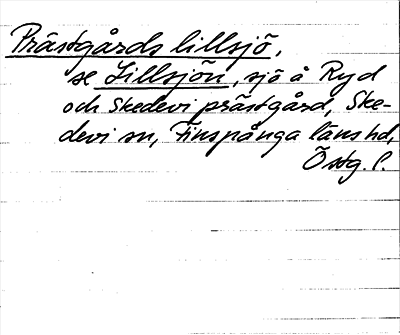 Prästgårds lillsjö,
se Lillsjön, sjö å Ryd
och Skedevi prästgård, Ske-
devi sn, Finspånga läns hd,
Östg. l.